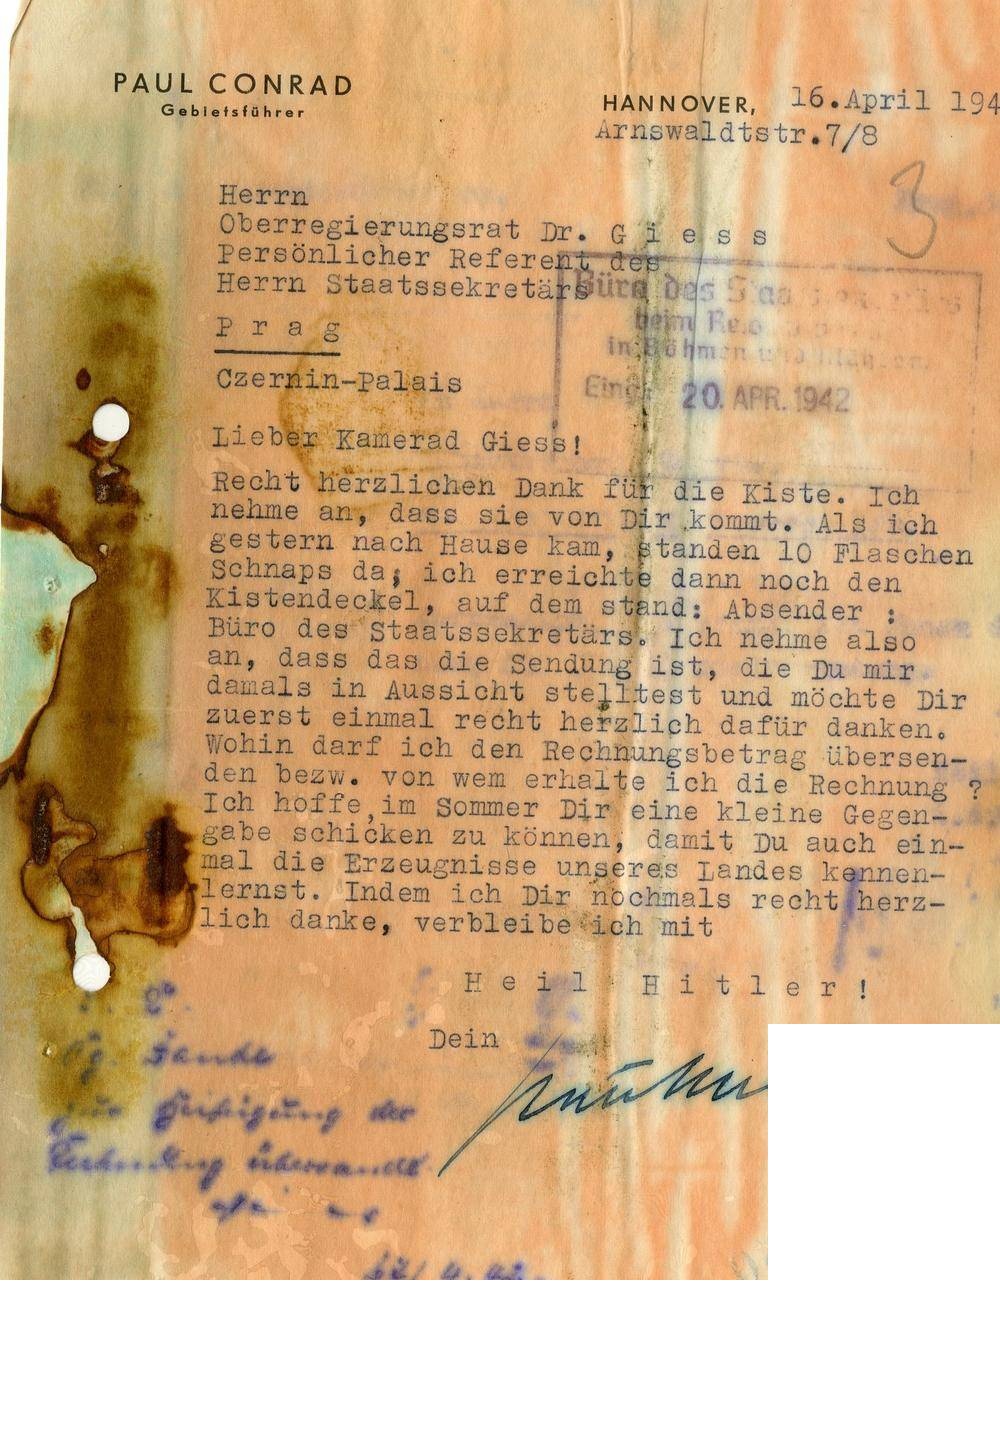 PAUL CONRAD
Gebietsführer
HANNOVER, 16.April 194
Arnswaldtstr.7/8
3
Herrn
Oberregierungsrat Dr. G i e s s
Persönlicher Referent des
Herrn Staatssekretärs
P r a g
Czernin-Palais
Büro des
beim
in Böhmen und
Eing. 20. APR. 1942
Lieber Kamerad Giess!
Recht herzlichen Dank für die Kiste. Ich
nehme an, dass sie von Dir kommt. Als ich
gestern nach Hause kam, standen 10 Flaschen
Schnaps da; ich erreichte dann noch den
Kistendeckel, auf dem stand: Absender :
Büro des Staatssekretärs. Ich nehme also
an, dass das die Sendung ist, die Du mir
damals in Aussicht stelltest und möchte Dir
zuerst einmal recht herzlich dafür danken.
Wohin darf ich den Rechnungsbetrag übersen-
den bezw. von wem erhalte ich die Rechnung ?
Ich hoffe,im Sommer Dir eine kleine Gegen-
gabe schicken zu können, damit Du auch ein-
mal die Erzeugnisse unseres Landes kennen-
lernst. Indem ich Dir nochmals recht herz-
lich danke, verbleibe ich mit
H e i l H i t l e r !
Dein
der